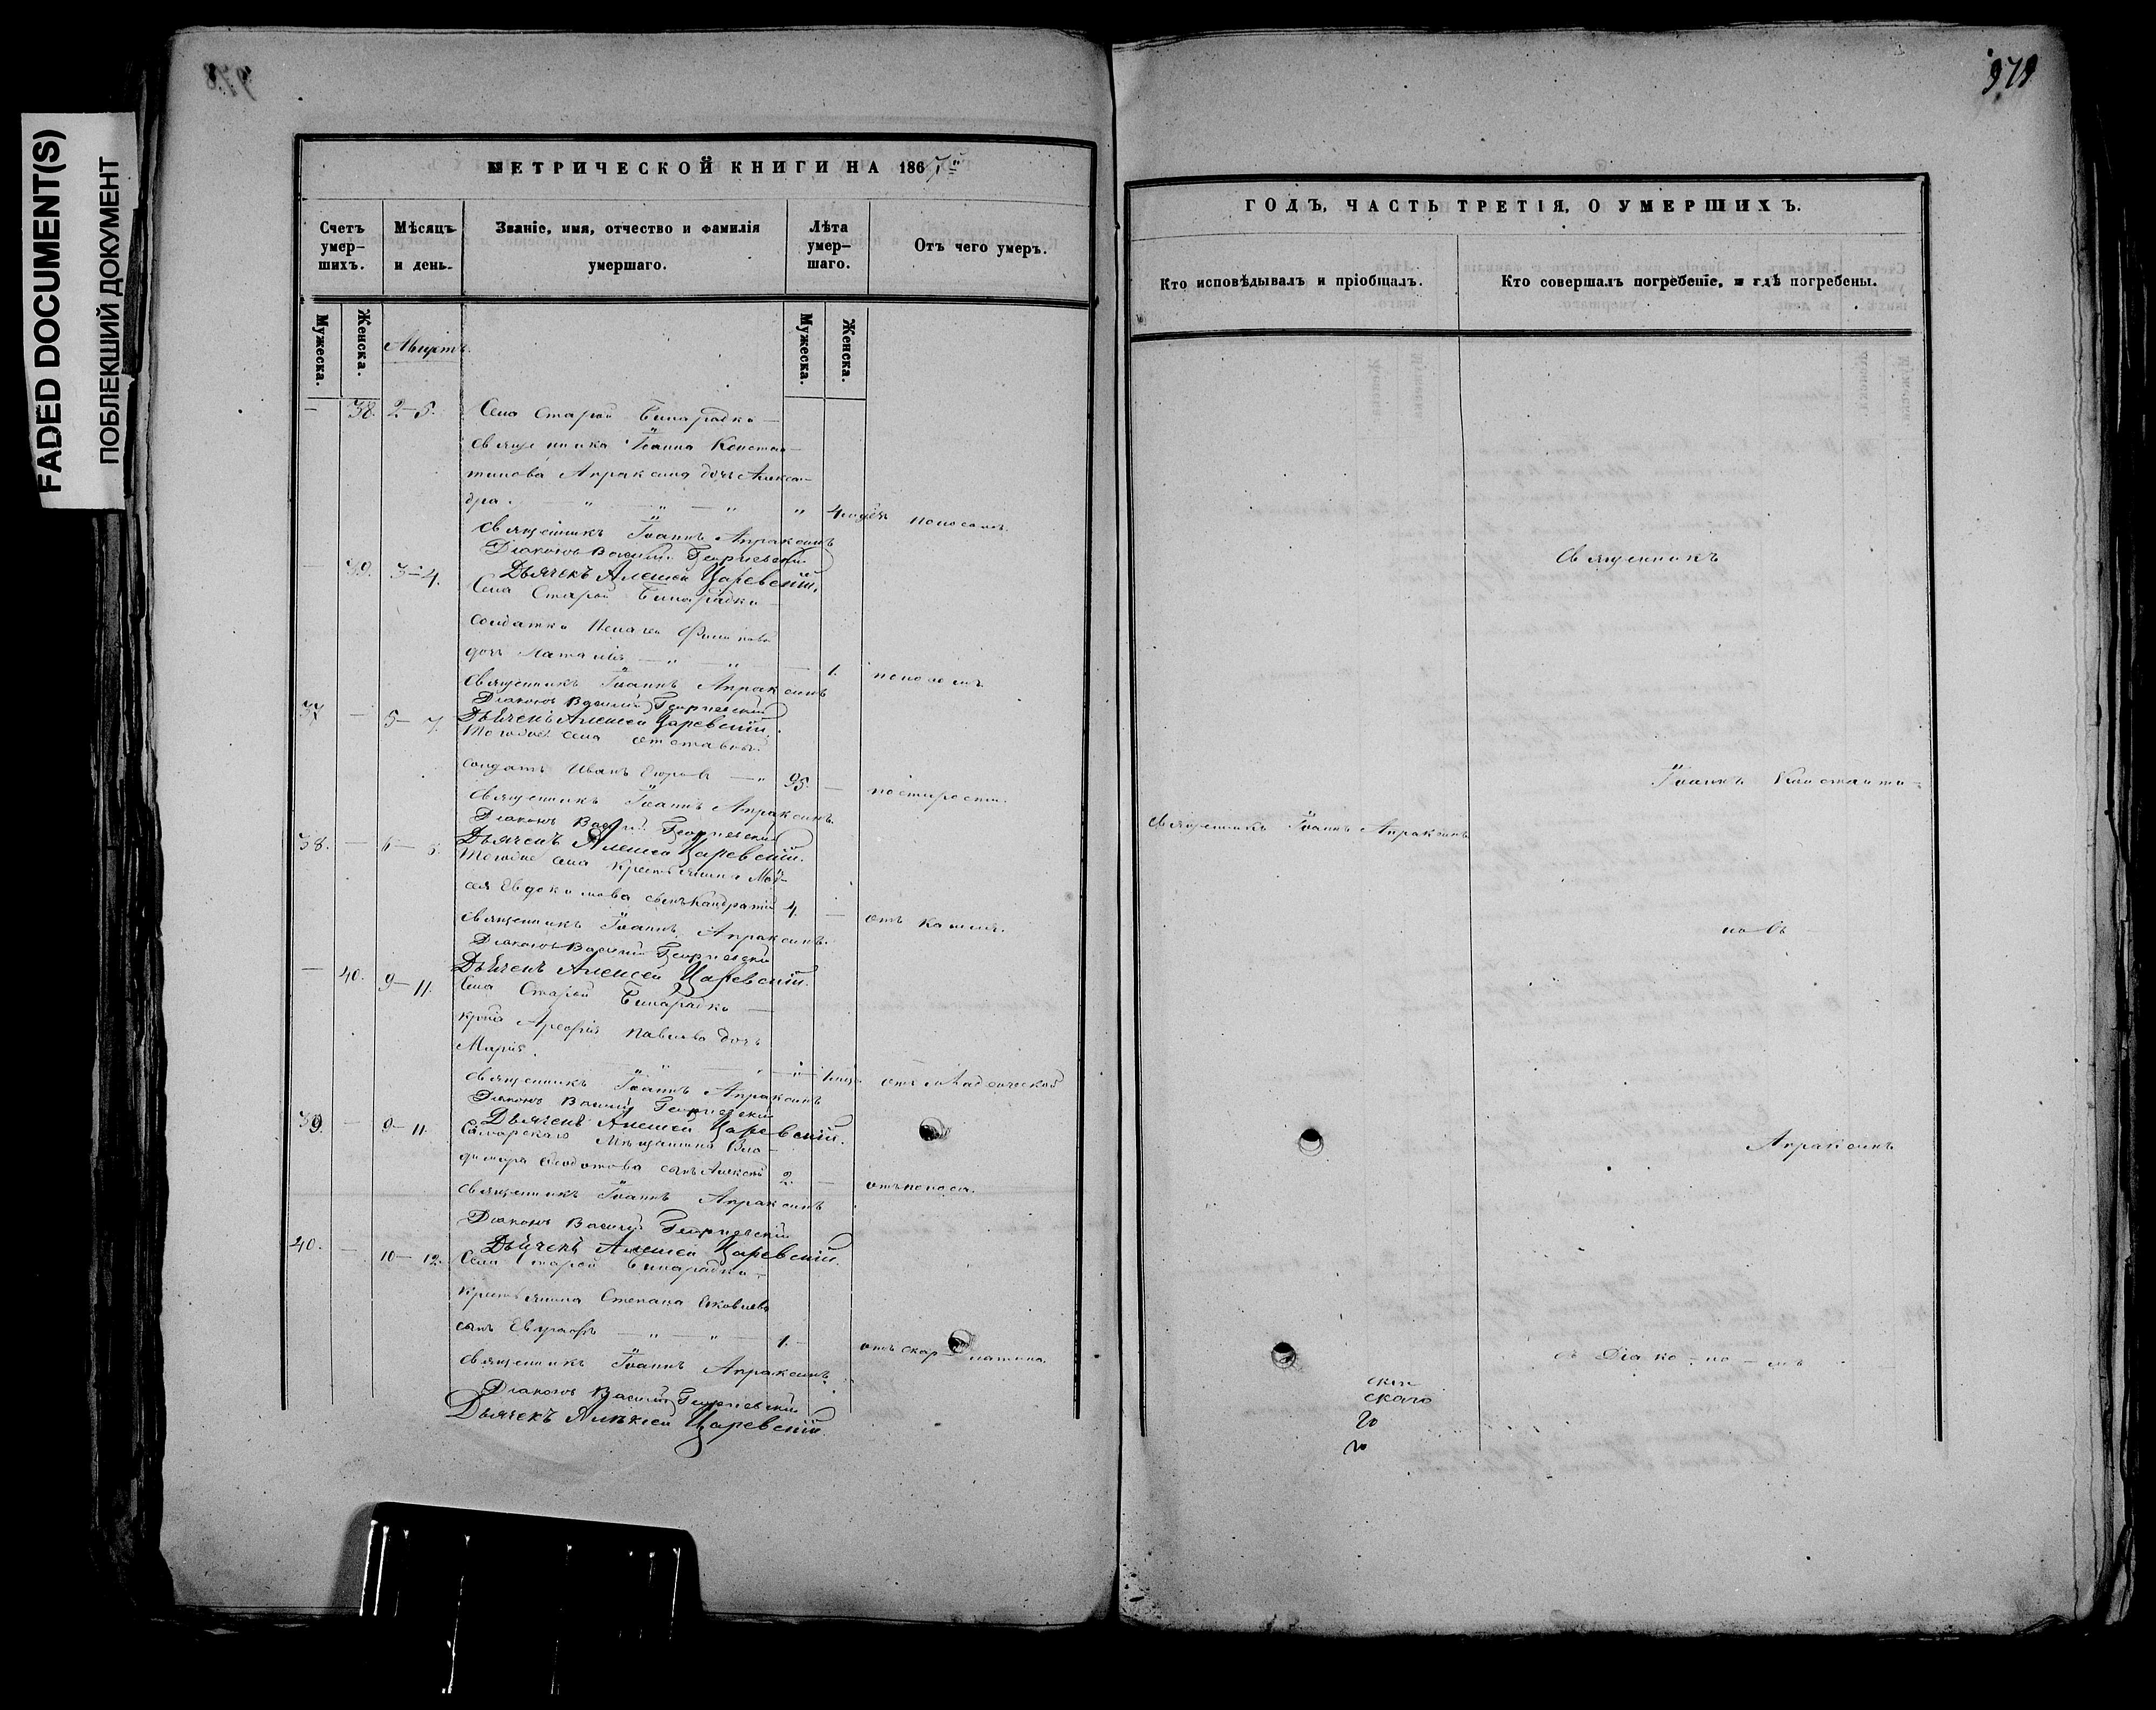 FADED DOCUMENT(S)
ПОБЛЕКШИЙ ДОКУМЕНТ
979
МЕТРИЧЕСКОЙ КНИГИ НА 1867
Счетъ умер-
шихъ.
Мѣсяцъ
и день.
Званіе, имя, отчество и фамилія
умершаго.
Лѣта
умер-
шаго.
Отъ чего умеръ.
Мужеска.
Женска.
Августъ.
Мужеска.
Женска.
— 38. 2–5. Села Старой Бинарадки
священника Іоанна Констан-
тинова Апраксина дочь Алексан-
дра. 4 поносомъ.
Священникъ Іоаннъ Апраксинъ
Діаконъ Василій Георгіевскій
Дьячекъ Алексей Царевскій.
— 39. 3–4. Села Старой Бинарадки
солдатки Пелагеи Филиповой
дочь Наталія 1. поносомъ.
Священникъ Іоаннъ Апраксинъ
Діаконъ Василій Георгіевскій
Дьячекъ Алексей Царевскій.
37 — 5–7. Тогоже села отставной
солдатъ Иванъ Егоровъ 95. — по старости.
Священникъ Іоаннъ Апраксинъ.
Діаконъ Василій Георгіевскій
Дьячекъ Алексей Царевскій.
38. — 6–8. Тогоже села крестьянина Мои-
сея Евдокимова сынъ Кандратій 4. — отъ кашля.
Священникъ Іоаннъ Апраксинъ.
Діаконъ Василій Георгіевскій
Дьячекъ Алексей Царевскій.
— 40. 9–11. Села Старой Бинарадки —
Павлова дочь
Марія.
Священникъ Іоаннъ Апраксинъ
Діаконъ Василій Георгіевскій
Дьячекъ Алексей Царевскій.
39. — 9–11. Самарскаго Мѣщанина Вла-
димира Федотова сынъ Алексей 2. — отъ поноса.
Священникъ Іоаннъ Апраксинъ
Діаконъ Василій Георгіевскій
Дьячекъ Алексей Царевскій.
40. — 10–12. Села Старой Бинарадки —
крестьянина Степана Яковлева
сынъ Евграфъ 1. — отъ скарлатина.
Священникъ Іоаннъ Апраксинъ.
Діаконъ Василій Георгіевскій
Дьячекъ Алексей Царевскій.
ГОДЪ, ЧАСТЬ ТРЕТІЯ, О УМЕРШИХЪ.
Кто исповѣдывалъ и пріобщалъ.
Кто совершалъ погребеніе, и гдѣ погребены.
Священникъ
Іоаннъ Константи-
Священникъ Іоаннъ Апраксинъ
новъ
Апраксинъ
съ Діако-но-мъ
скаго
го
го